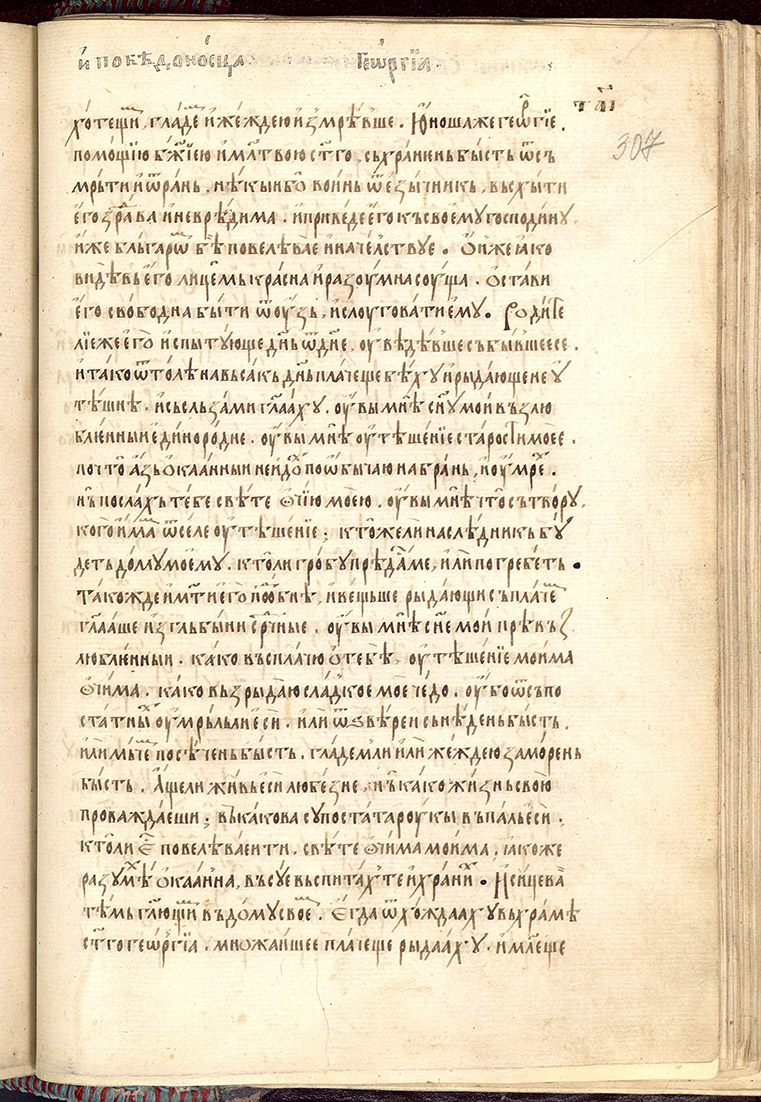 и҆ побѣдоно́сца Геѡ́ргїа .
т҃а҃і
307
хо́тещиⷨ , гла́дѡⷨ и҆ же́ждею и҆ и҆змрѣ́вше . Ю҆ноша же геѡⷬ҇гїе .
помо́щїю бж҃їею и҆ млтⷡ҇ою ст҃го , съхране́нь бы́сть ѿ съ
мрь́ти и҆ ѿ ра́нь . нѣ́кыи бѡ во́инь ѿ е҆зы́чникь , въсхы́ти
е҆го̀ здра́ва и҆ невре́дима . и҆ приведѐ е҆го̀ къ своему̀ господи́ну
и҆же бль́гарѡⷨ бѣ̀ повелѣ́вае и҆ наче́лствуе . Ѻ҆н же ꙗ҆ко
ви́дѣвь е҆го̀ лице́мь кра́сна и҆ разоу́мна соу́ща . ѻ҆ста́ви
е҆го̀ сво́бодна бы́ти ѿ оу҆́зь , и҆ слоугова́ти е҆му̀ . Роди́те
лїе же е҆гѡ̀ и҆спы́тующе дн҃ь ѿ дн҃е , оу҆вѣ́дѣвше съ бы́вшее се .
и҆ та́ко ѿто́лѣ на вьса́къ дн҃ь пла́чеще бѣ́ху и҆ рыда́юще не оу҆
тѣ́шнѣ . и҆ съ сльза́ми гл҃ааху . оу҆вы̀ мнѣ̀ сн҃у мо́и въ́злю
бле́нныи е҆диноро́дне . оу҆вы̀ мнѣ̀ оу҆тѣше́нїе ста́рости мо́ее .
почто̀ а҆зь ѻ҆каа́нныи не идо́хь по ѻ҆бы́чаю на бра́нь , и҆ оу҆мрѣⷯ .
нъ̀ посла́хь те́бе свѣ́те ѻ҆чі́ю мое́ю . оу҆вы̀ мнѣ̀ что̀ сътвору̀ ,
кого̀ и҆́маⷨ ѿсе́ле оу҆тѣше́нїе ; кто́ же ли наслѣ́дникь бу́
деть до́му мое́му . кто́ ли гро́бу прѣда́ме , и҆ли погребе́ть .
Та́кожде и҆ мт҃и е҆го̀ поⷣбнѣ , и҆ ве́щьше рыда́ющи съ пла́чеⷨ
гл҃ааше из глъбынѝ срⷣчные . оу҆вы̀ мнѣ̀ сн҃е мои прѣвъ́з
лю́бленныи . ка́ко въспла́чю ѻ҆ тебѣ̀ , оу҆тѣше́нїе мои́ма
ѻ҆чи́ма . ка́ко възрыда́ю сла́дкое мое че́до . оу҆бо ѿ съпо
ста́тныⷯ оу҆мрьлань е҆си . и҆лѝ ѿ ѕвѣ́реи снѣ́день бы́сть .
и҆лѝ мьче́ⷨ посѣ́чень бы́сть . гла́дем ли и҆лѝ же́ждею замо́рень
бы́сть . А҆ще ли жи́вь е҆си лю́безне , нъ̀ ка́ко жи́знь свою̀
прова́ждаеши ; въ ка́кова супоста́та роу́кы въпа́ль е҆си .
кто́ ли є҆́ⷭ҇ повелѣ́ваеи ти , свѣ́те ѻ҆чи́ма мои́ма , ꙗ҆коже
разу́мѣⷯ ѻ҆каа́нна , въ су́е въспита́х те и҆ хра́ниⷯ . И҆ си́цеваа
тѣ́мь гл҃ющиⷨ въ дому̀ своеⷨ . Е҆гда̀ ѿхо́ждааху въ хра́мь
ст҃го геѡ́ргїа . мно́жаишее пла́чеще рыдааху . и҆ мл҃еще